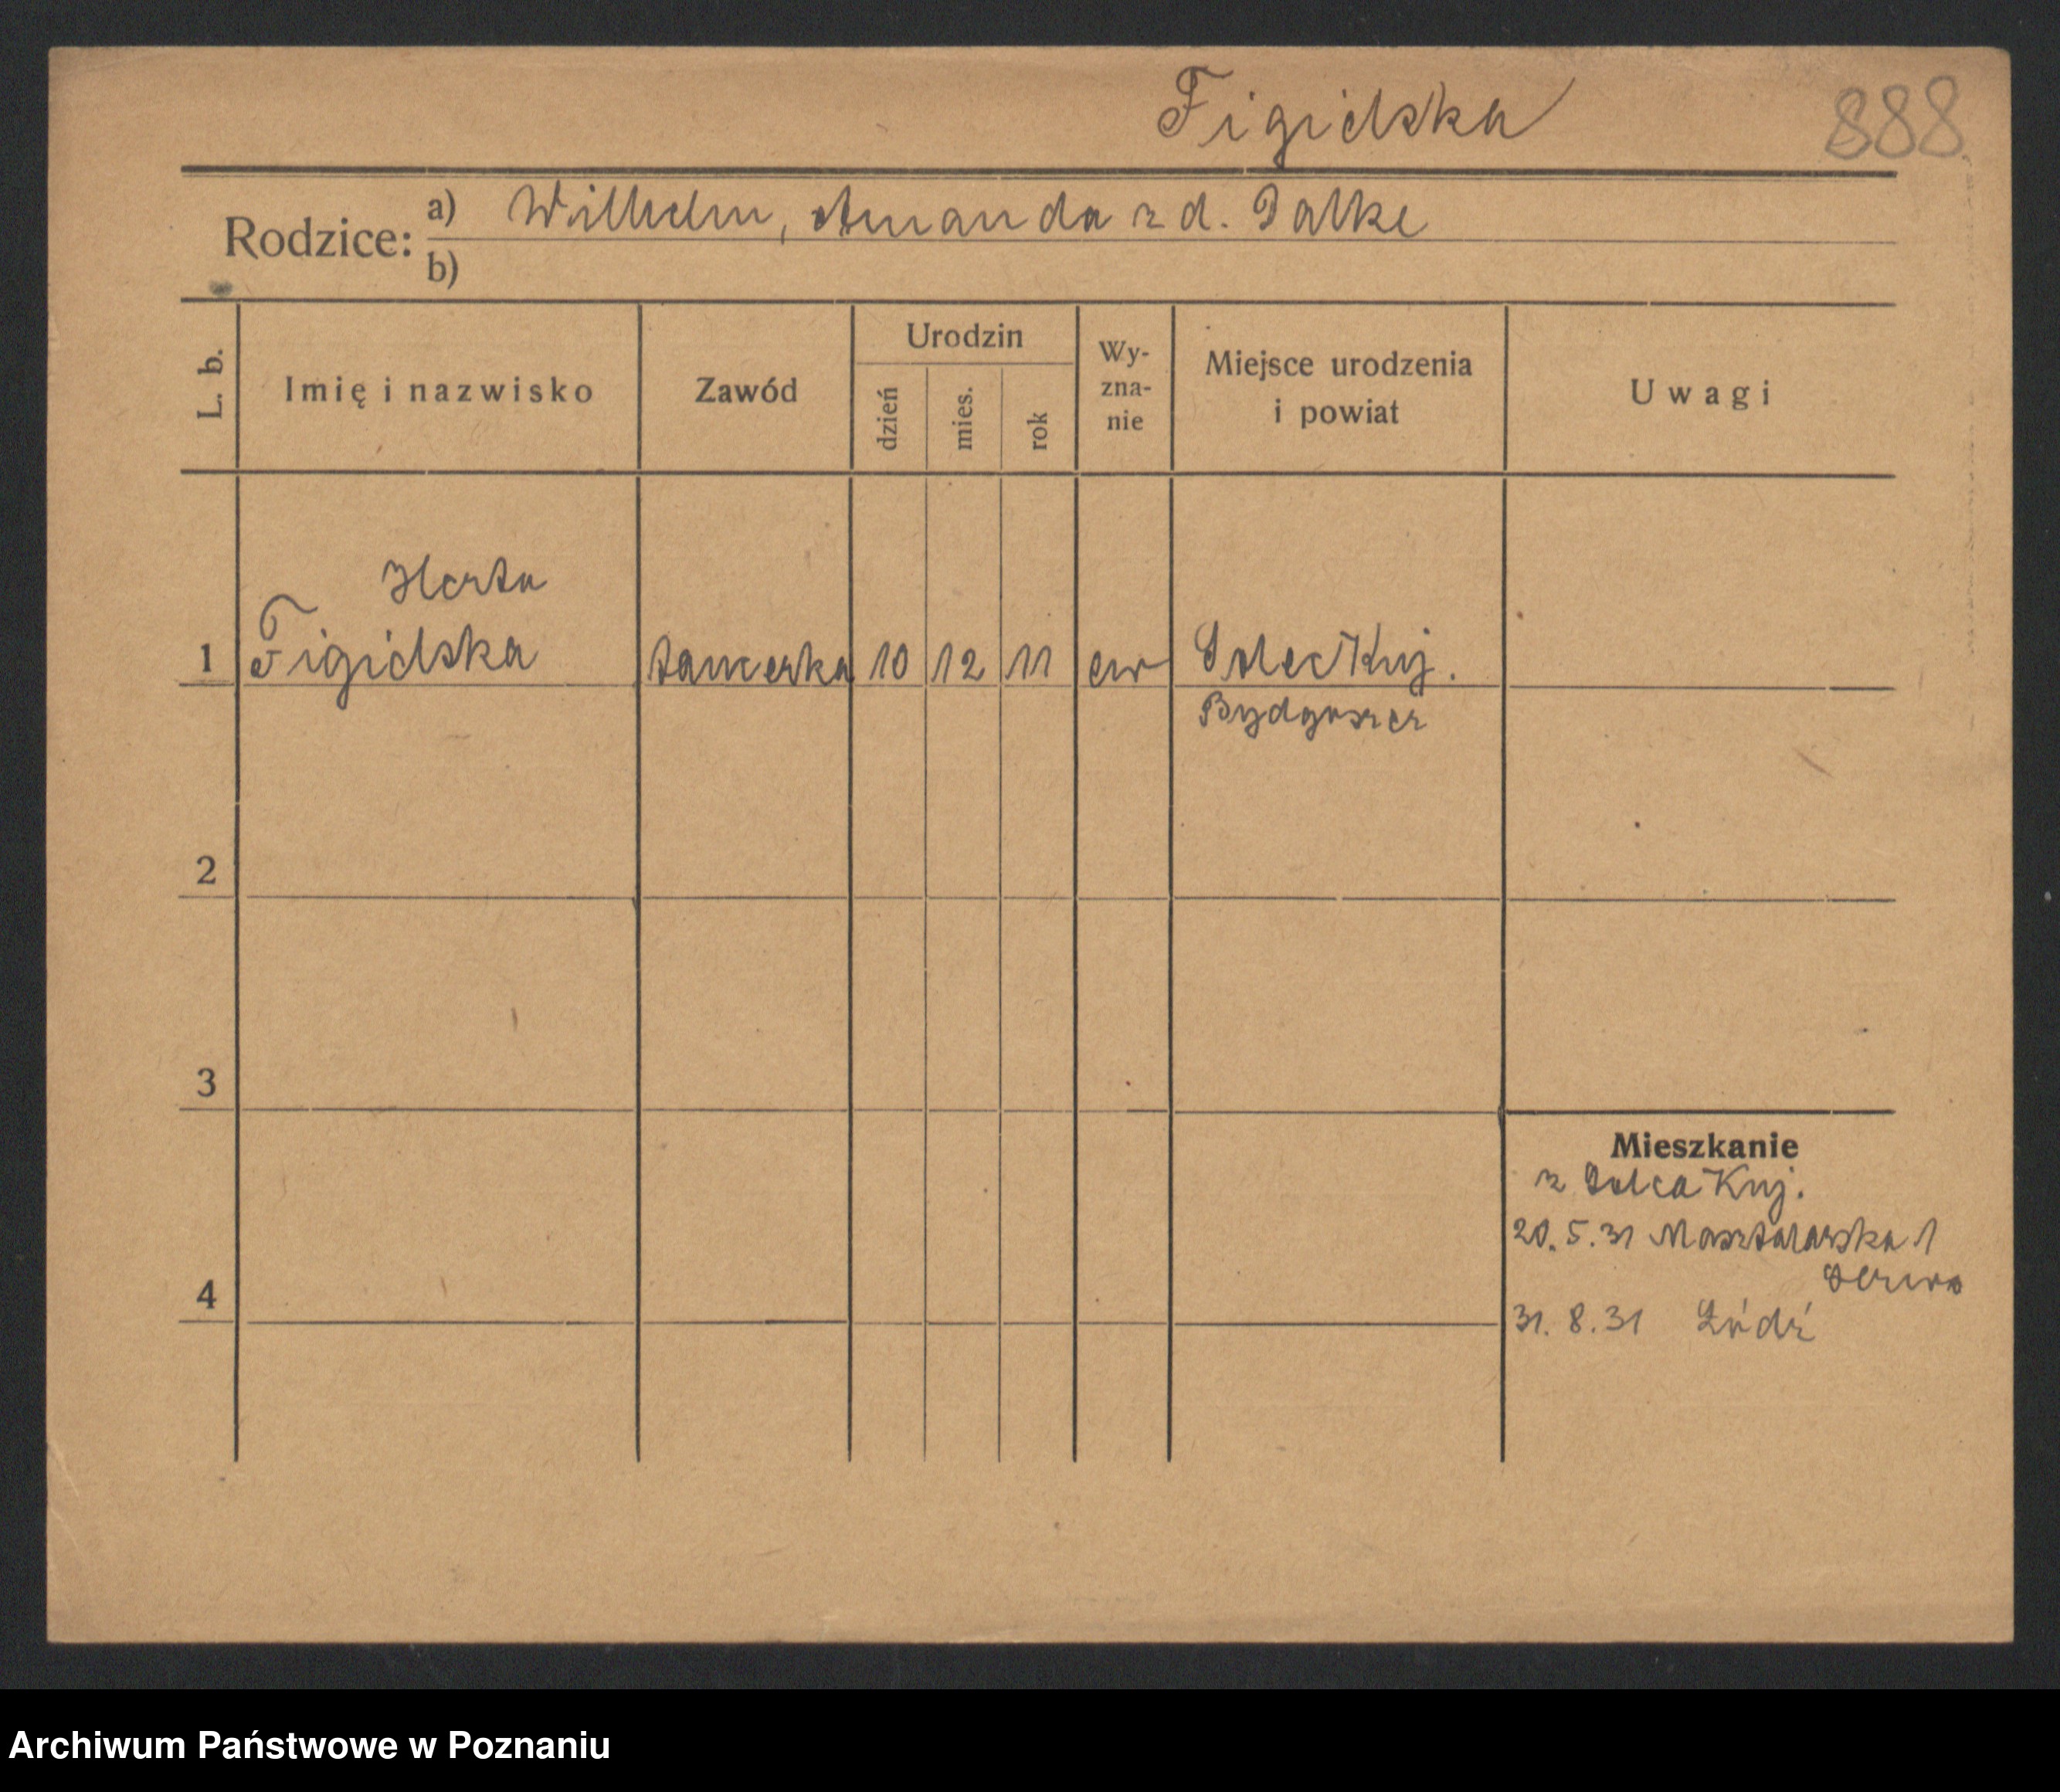 Figielska 888
Rodzice: a) Wilhelm, Amanda z d. Palke
b)
L. b.
Imię i nazwisko
Zawód
Urodzin
dzień
mies.
rok
Wy-
zna-
nie
Miejsce urodzenia
i powiat
Uwagi
Herta
1 Figielska tancerka 10 12 11 ew Solec Kuj.
Bydgoszcz
2
3
4
Mieszkanie
z Solca Kuj.
20. 5. 31 Masztalarska 1
31. 8. 31 Łódź
Archiwum Państwowe w Poznaniu